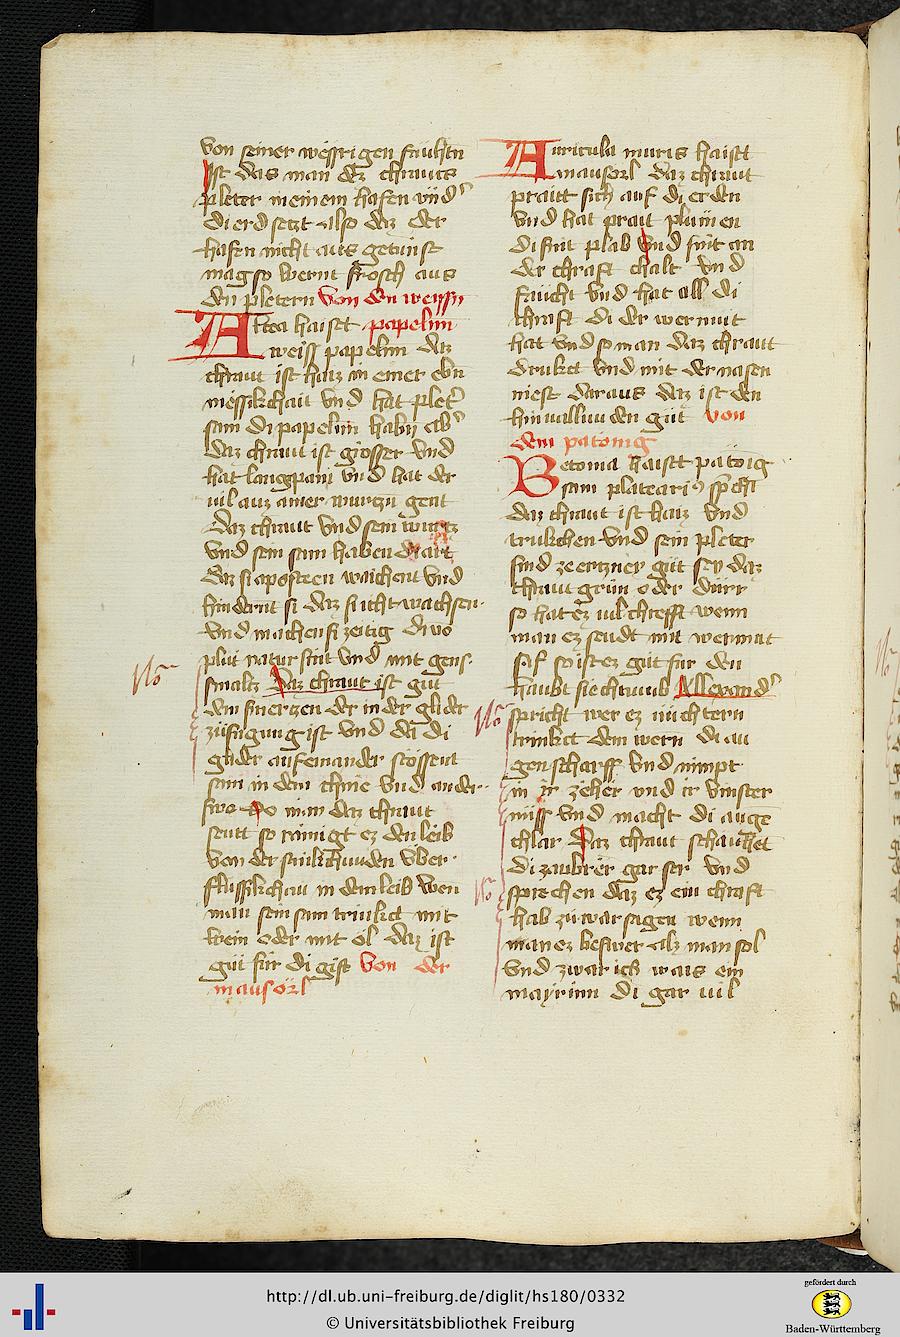 von seiner wessrigen fäuhtn
Ist das man dez chrawts
pleter in einem hafen vnd
di erd setzt also daz der
hafen nicht aus getünst
mag so wernt frosch aus
den pletern von den weyssn
Altea haisst papelnn
weiss papelnn daz
chraut ist haiz in einer ebn
messikchait vnd hat plet͛
sam di papelnn habn ab͛
daz chraut ist grösser vnd
hat lang span vnd hat der
uil auz ainer wurtzn gent
daz chraut vnd sein wurtz
vnd sein sam haben di art
daz si aposteen waichent vnd
hindernt si daz si icht wachsen
vnd machen si zeitig di wo
plüt natur sint vnd mit gens
smaltz Daz chraut ist güt
den smertzen der in der glider
züfügung ist vnd da di
glider auf einander stössent
sam in dem chnie vnd ander
swo so man daz chraut
seutt so rainigt ez den leib
von der
flüssikchait in dem leib wen
man sein sam trinkct mit
wein oder mit öl daz ist
güt für di gift von der
mausörl
Auricula muris haisst
mausorl daz chraut
praitt sich auf di erden
vnd hat prait plumen
di sint plab vnd sint an
der chraft chalt vnd
fäucht vnd hat all di
chraft di der wermüt
hat vnd so man daz chraut
druket vnd mit der nasen
niest daraus daz ist den
hinvallunden güt von
dem patonig
Betonia haisst patonig
sam platearius spricht
daz chraut ist haiz vnd
trukchen vnd sein pleter
sind ze ertzney güt sey daz
chraut grün oder dürr
so hat ez uil chrefft wenn
man ez seudt mit wermüt
saf so ist ez güt für den
haubt siechtumb Allexand͛
spricht wer ez nüchtern
trinkct dem wern di au
gen scharff vnd nimpt
in ir zeher vnd ir vinster
nüss vnd macht di auge
chlar Daz chraut schauchet
di zaubrer gar ser vnd
sprechen daz ez ein chraft
hab zu warsagen wenn
man ez beswer alz man sol
vnd zwar ich wais ein
mayrinn di gar uil
http://dl.ub.uni-freiburg.de/diglit/hs180/0332
© Universitätsbibliothek Freiburg
gefördert durch
Baden-Württemberg